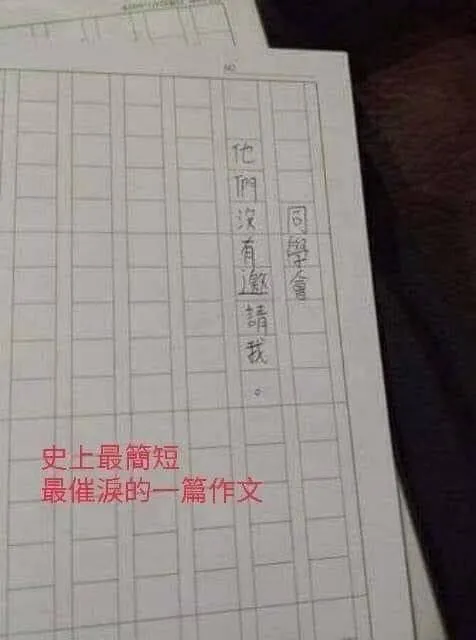 NO.
同學會
他們沒有邀請我。
史上最簡短
最催淚的一篇作文